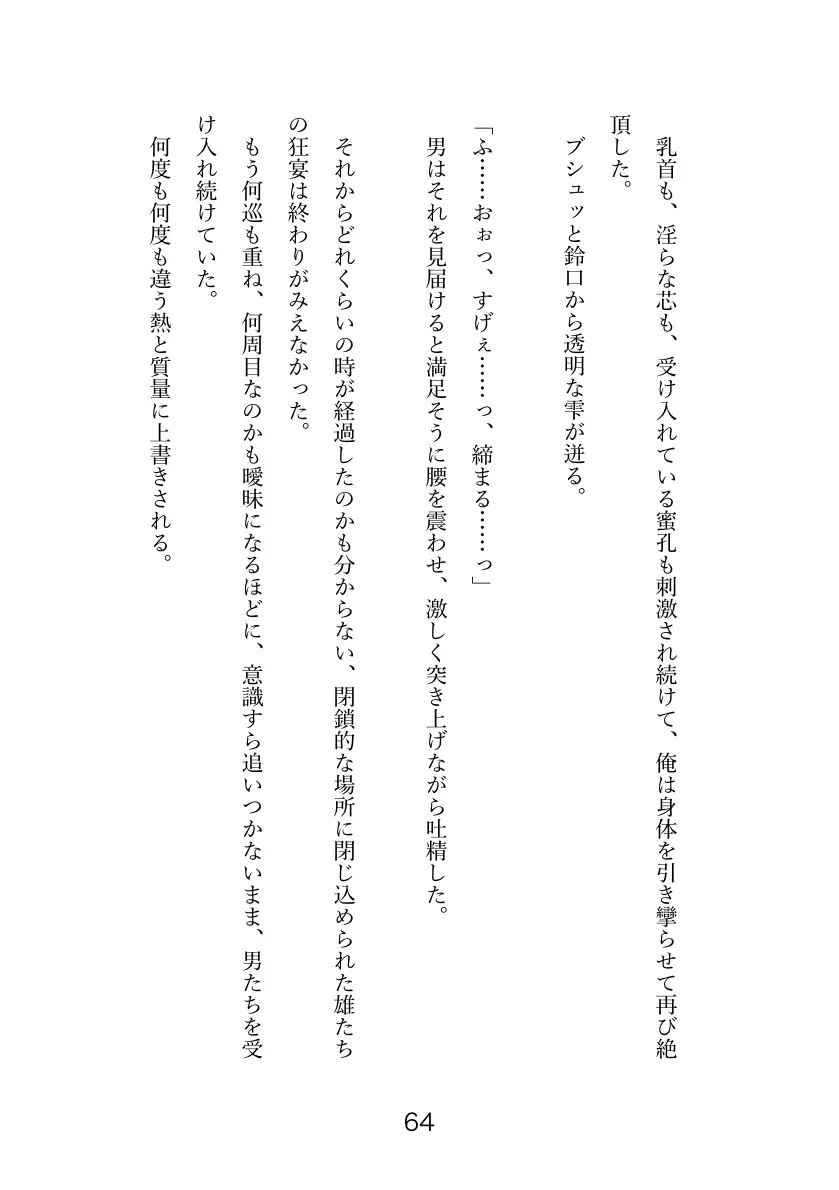 乳首も、淫らな芯も、受け入れている蜜孔も刺激され続けて、俺は身体を引き攣らせて再び絶
頂した。
ブシュッと鈴口から透明な雫が迸る。
「ふ……おぉっ、すげぇ……っ、締まる……っ」
男はそれを見届けると満足そうに腰を震わせ、激しく突き上げながら吐精した。
それからどれくらいの時が経過したのかも分からない、閉鎖的な場所に閉じ込められた雄たち
の狂宴は終わりがみえなかった。
もう何巡も重ね、何周目なのかも曖昧になるほどに、意識すら追いつかないまま、男たちを受
け入れ続けていた。
何度も何度も違う熱と質量に上書きされる。
64